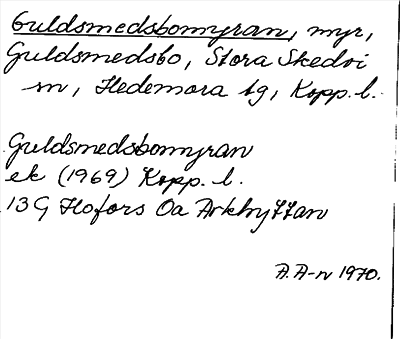 Guldsmedsbomyran, myr,
Guldsmedsbo, Stora Skedvi
sn, Hedemora tg, Kopp. l.
Guldsmedsbomyran
ek (1969) Kopp. l.
13G Hofors 0a Arkhyttan
A.A-n 1970.